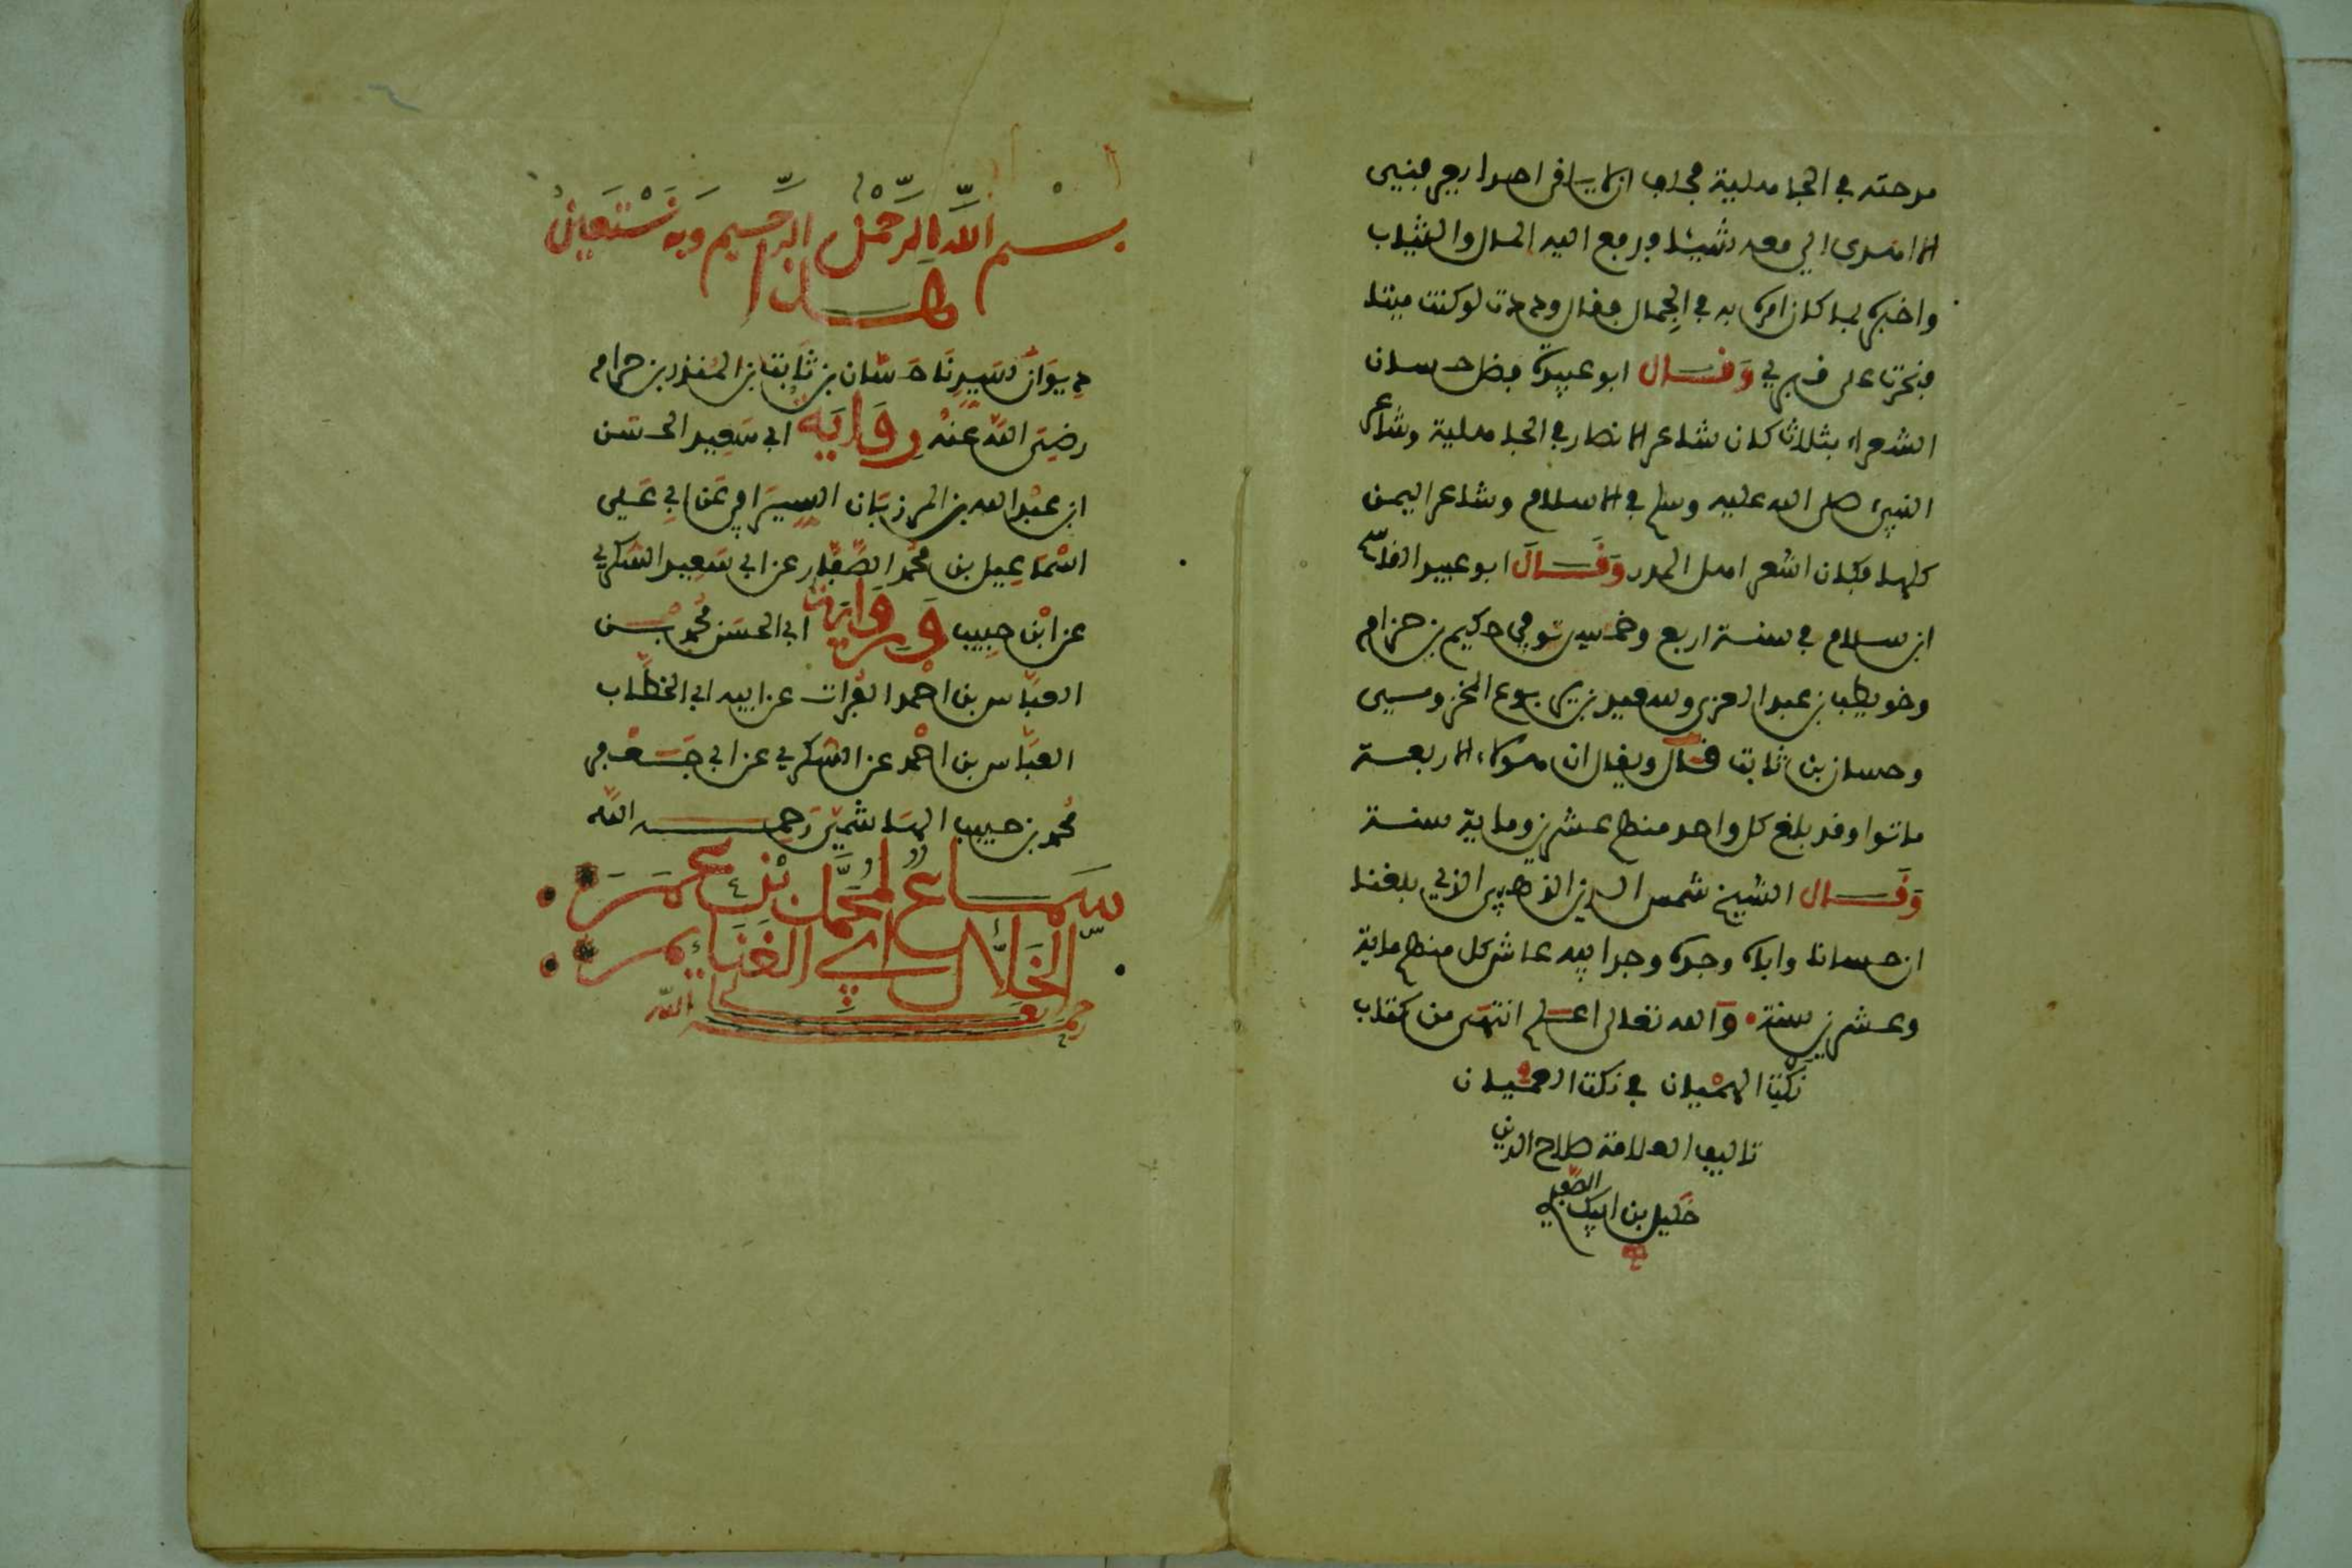 مدحته في الجاهلية فحلف ان لا يسافر احد ارجع فنبي
الا اهدى الي معه شيئا ودفع اليه المال والثياب
واخبره بما كان امره به في الجمال فقال وددت لو كنت ميتا
فنحرت على قبري وقال ابو عبيدة فضل حسان
الشعراء بثلاث كان شاعر الانصار في الجاهلية وشاعر
النبي صلى الله عليه وسلم في الاسلام وشاعر اليمن
كلها وكان اشعر اهل المدر وقال ابو عبيد القاسم
ابن سلام في سنة اربع وخمسين توفي حكيم بن حزام
وخويطب بن عبد العزى وسعيد بن يربوع المخزومي
وحسان بن ثابت قال ويقال ان هولاء الاربعة
ماتوا وقد بلغ كل واحد منهم عشرين وماية سنة
وقال الشيخ شمس الدين الذهبي الذي بلغنا
ان حسانا واباه وجده وجد ابيه عاش كل منهم ماية
وعشرين سنة والله تعالى اعلم انتهى من كتاب
نكت الهميان في نكت العميان
تاليف العلامة صلاح الدين
خليل بن ايبك الصفدي
بسم الله الرحمن الرحيم وبه نستعين
هذا
ديوان سيدنا حسان بن ثابت بن المنذر بن حرام
رضي الله عنه رواية ابي سعيد الحسن
ابن عبد الله بن المرزبان السيرافي عن ابي علي
اسماعيل بن محمد الصفار عن ابي سعيد السكري
عن ابن حبيب ورواية ابي الحسن محمد بن
العباس بن احمد الفرات عن ابيه ابي الخطاب
العباس بن احمد عن السكري عن ابي جعفر
محمد بن حبيب الهاشمي رحمه الله
سماع لمحمد بن عمر
الخلال ابي الغنايم
رحمه الله تعالى